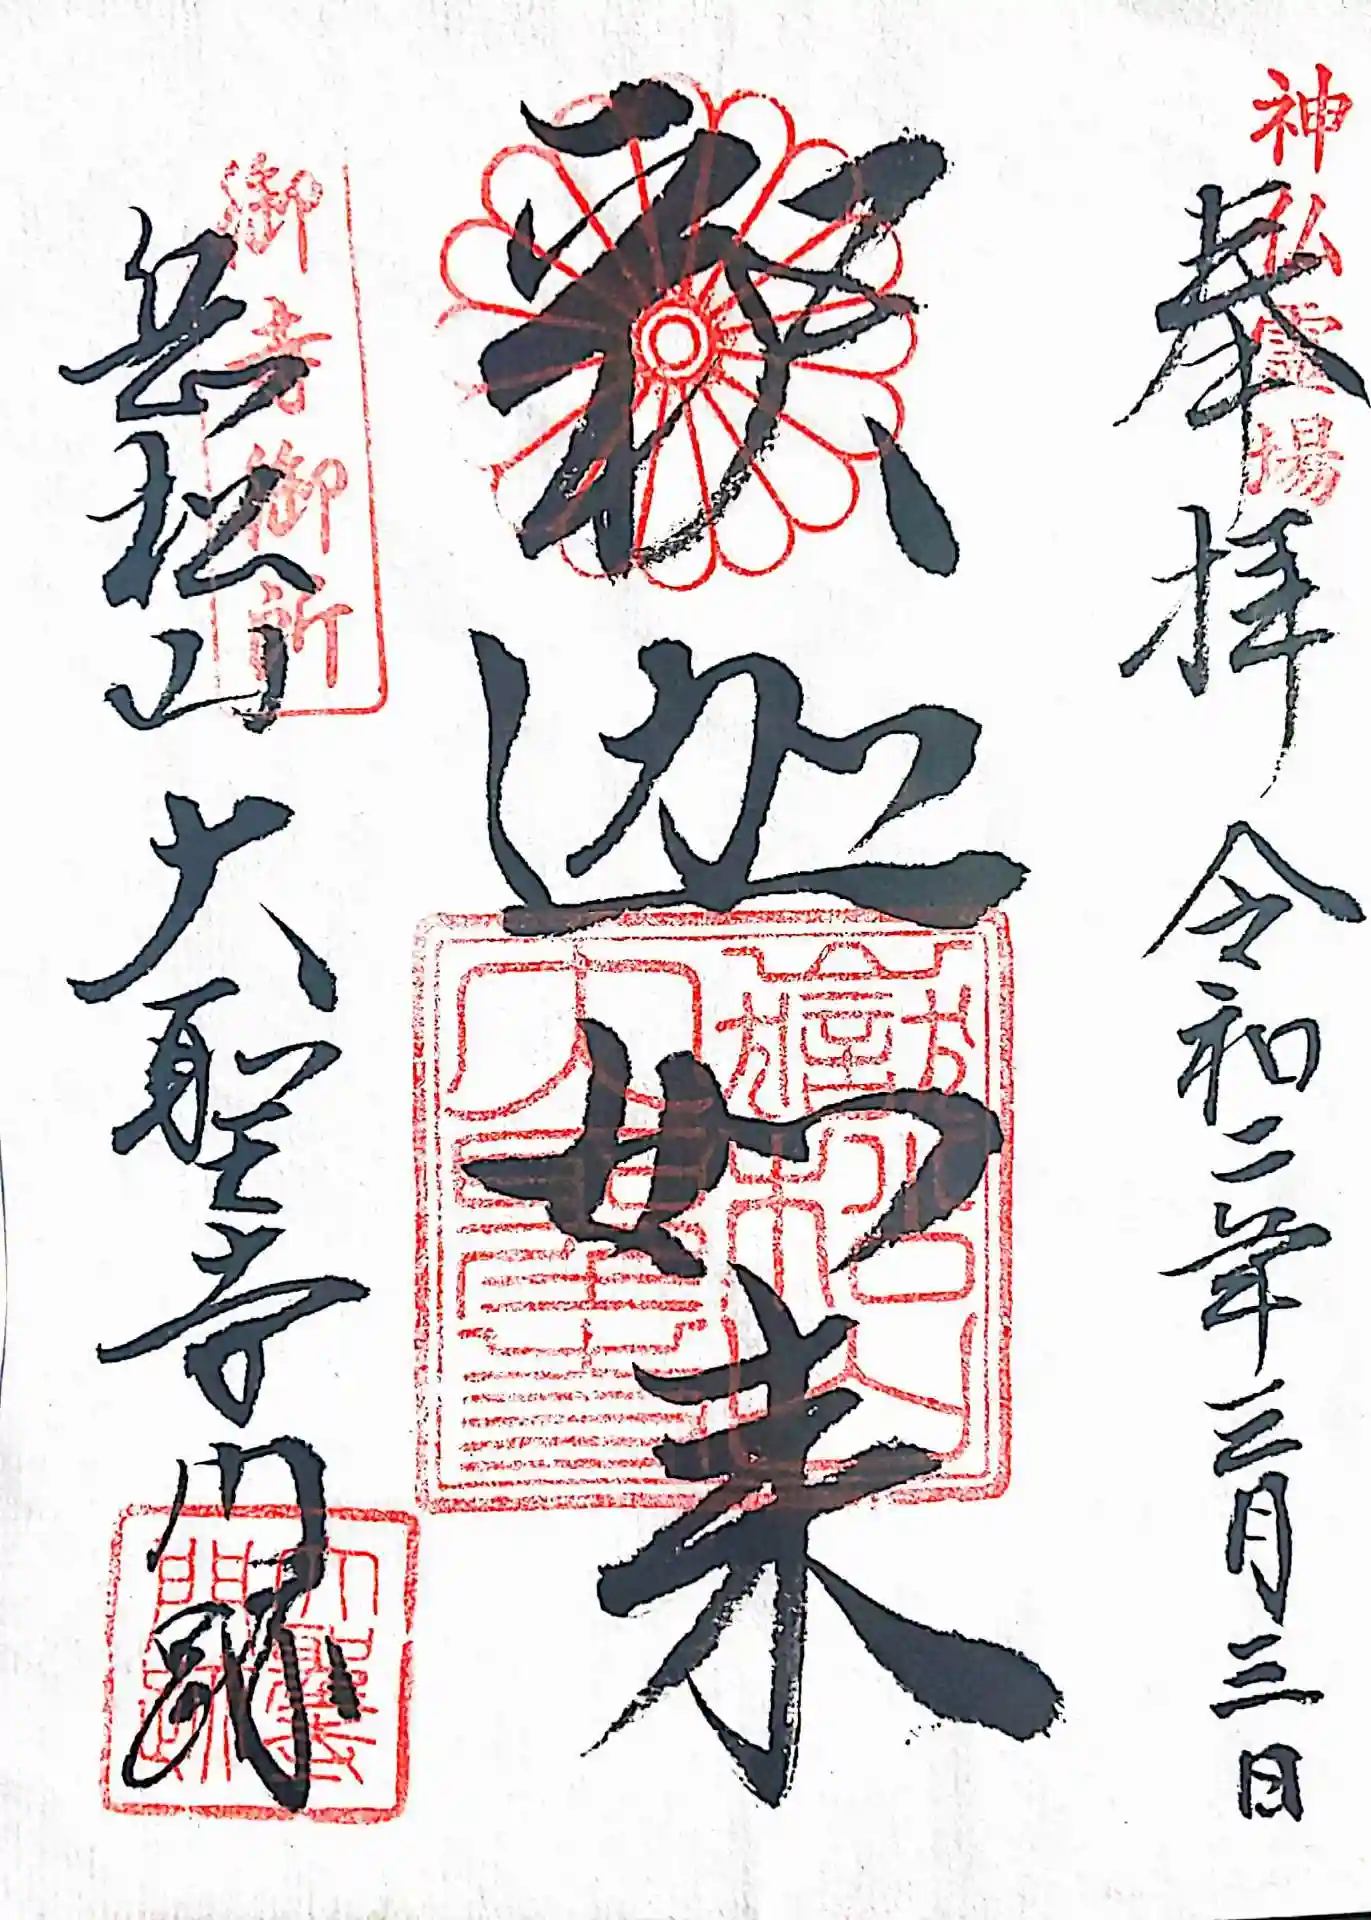 神仏霊場
奉拝 令和二年三月三日
釈迦如来
御寺御所
岳松山 大聖寺門跡
大聖寺門跡